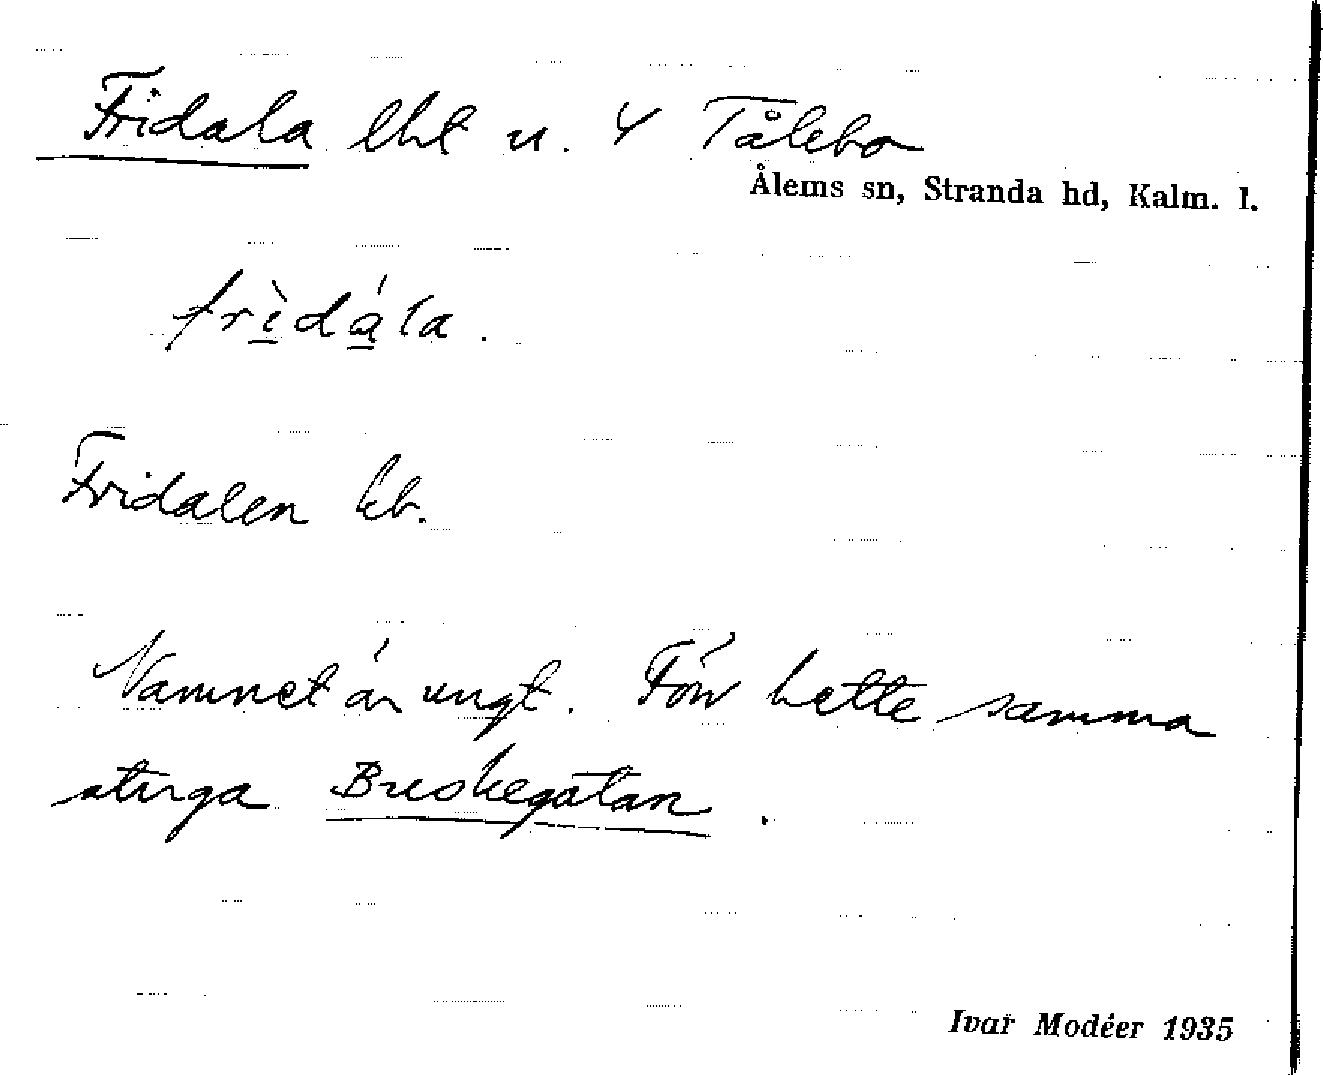 Fridala lht u. 4 Tålebo
Ålems sn, Stranda hd, Kalm. l.
frìdála.
Fridalen kb.
Namnet är ungt. Förr hette samma
stuga Breskegatan.
Ivar Modéer 1935